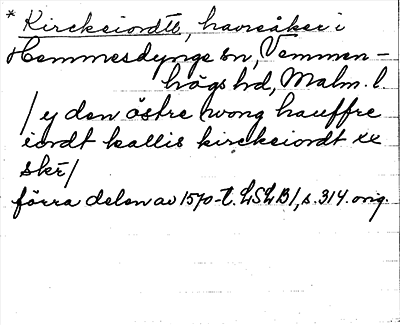 * Kirckeiordtt, havreåker i
Hemmesdynge sn, Vemmen-
högs hd, Malm. l.
/ y den östre wong hauffre
iordt kallis kirckeiordt xx
skr/
förra delen av 1570-t. LSLB1, s. 314. orig.